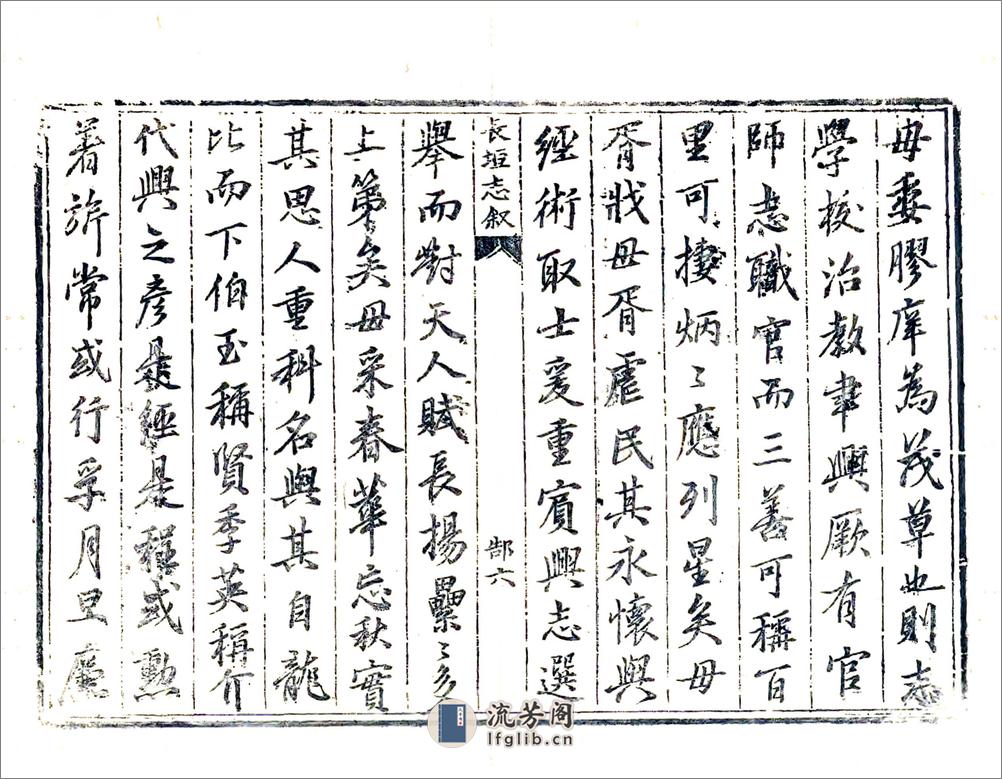 毋委膠庠為茂草也則志
學校治教聿興厥有官
師志職官而三善可稱百
里可捿炳〻應列星矣毋
胥戕毋胥虐民其永懷與
經術取士爰重賔興志選
長垣志叙
郜六
舉而對天人賦長揚纍〻多
上第矣毋采春華忘秋實
其思人重科名與其自龍
比而下伯玉稱賢季英稱介
代興之彥是經是程或勲
著旂常或行孚月旦廉
流芳阁
lfglib.cn